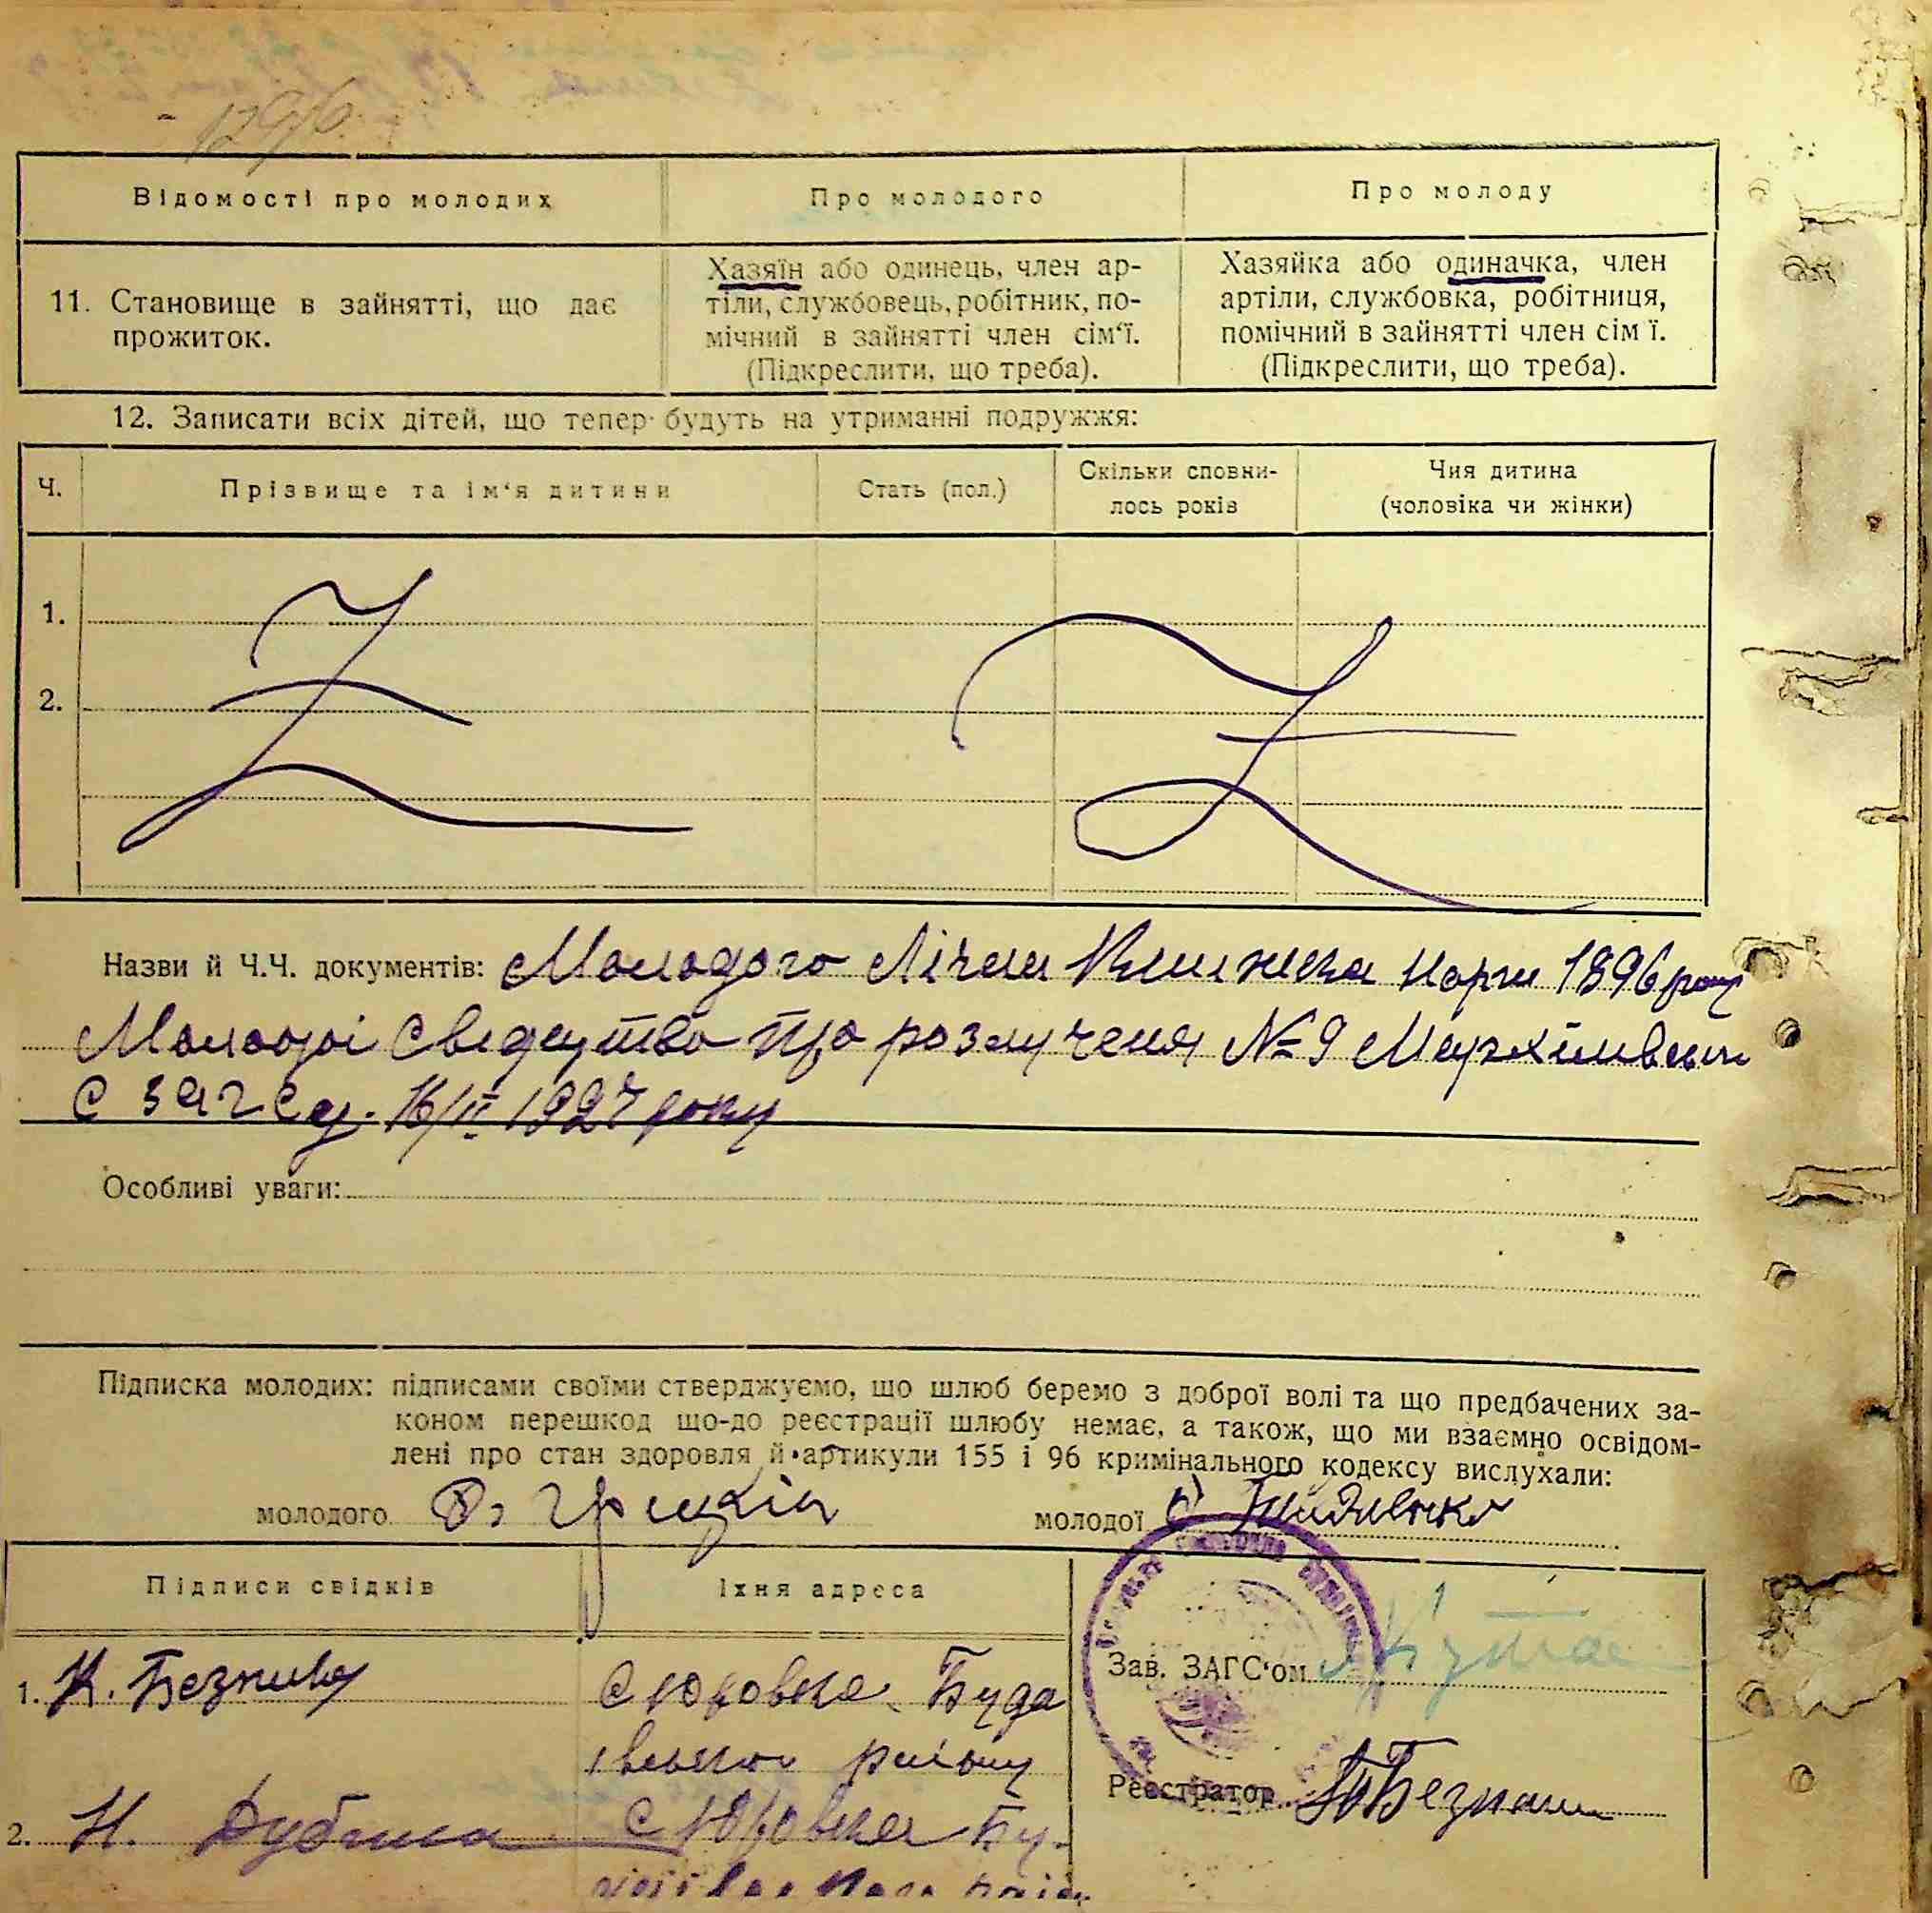 1296
Відомості про молодих
Про молодого
Про молоду
11. Становище в зайнятті, що дає
прожиток.
Хазяїн або одинець, член ар-
тіли, службовець, робітник, по-
мічний в зайнятті член сім‘ї.
(Підкреслити, що треба).
Хазяйка або одиначка, член
артіли, службовка, робітниця,
помічний в зайнятті член сім ї.
(Підкреслити, що треба).
12. Записати всіх дітей, що тепер будуть на утриманні подружжя:
Ч.
Прізвище та ім‘я дитини
Стать (пол.)
Скільки сповни-
лось років
Чия дитина
(чоловіка чи жінки)
1.
2.
Назви й Ч.Ч. документів: Молодого Лічна Книжка 1896 року
Молодої Сведецтво про розлученя №9
С загса 16/II 1927 року
Особливі уваги:
Підписка молодих: підписами своїми стверджуємо, що шлюб беремо з доброї волі та що предбачених за-
коном перешкод що-до реєстрації шлюбу немає, а також, що ми взаємно освідом-
лені про стан здоровля й артикули 155 і 96 кримінального кодексу вислухали:
молодого
молодої
Підписи свідків
Їхня адреса
1. К.
С Юровка Буда
ївського району
2. Н. Дубина
С Юровка Бу-
Зав. ЗАГС‘ом
Реєстратор